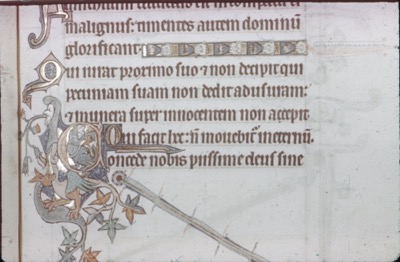 malignus: timentes autem dominū
glorificant
Qui iurat proximo suo ⁊ non decipit qui
pecuniam suam non dedit ad usuram:
⁊ munera super innocentem non accepit
Qui facit hec: nō movebitʳ ineternū.
Concede nobis piissime deus sine